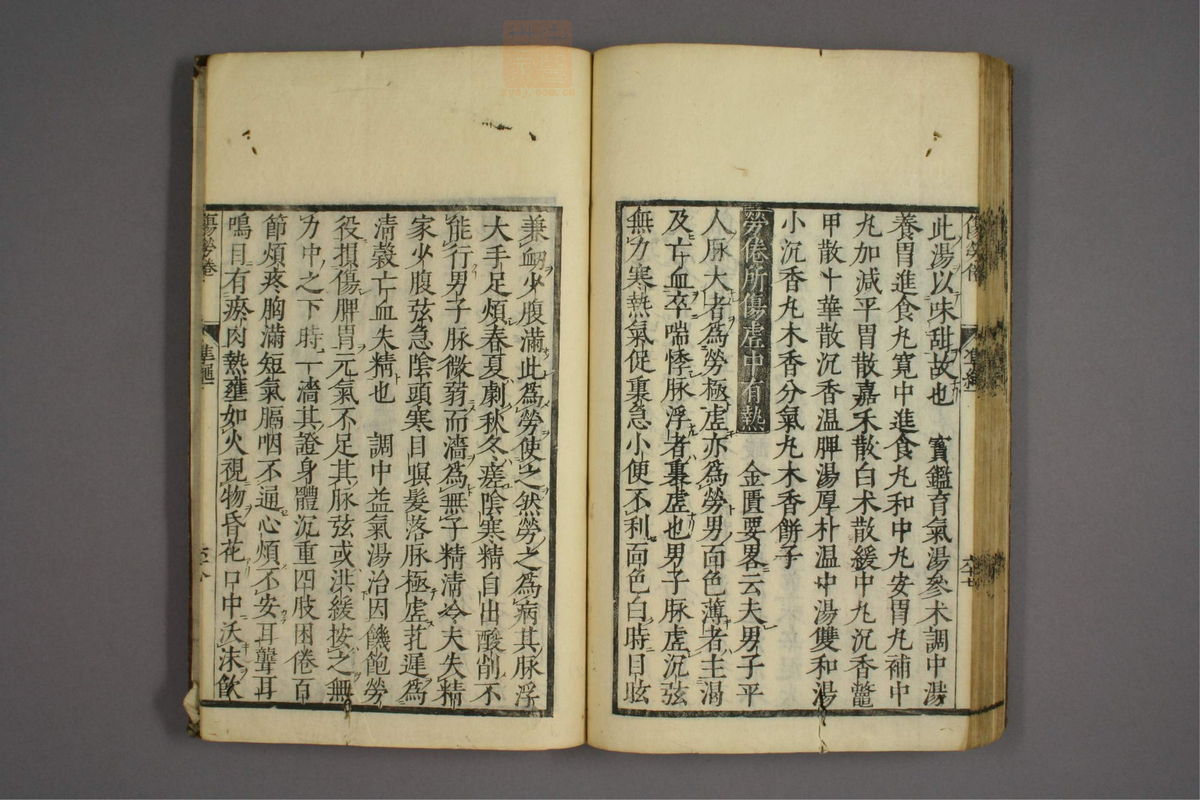 此湯以味甜故也　寳鑑育氣湯參术調中湯
養胃進食丸寛中進食丸和中丸安胃丸補中
丸加減平胃散嘉禾散白术散緩中丸沉香鼈
甲散十華散沉香温脾湯厚朴温中湯雙和湯
小沉香丸木香分氣丸木香餅子
勞倦所傷虚中有熱　金匱要畧云夫男子平
人脉大者為勞極虚亦為勞男面色薄者主渴
及亡血卒喘悸脉浮者裏虚也男子脉虚沉弦
無力寒熱氣促裏急小便不利面色白時目眩
兼衂少腹滿此為勞使之然勞之為病其脉浮
大手足煩春夏劇秋冬瘥陰寒精自出酸削不
能行男子脉微弱而濇為無子精清冷夫失精
家少腹弦急陰頭寒目暝髮落脉極虚芤遲為
清穀亡血失精也　調中益氣湯治因饑飽勞
役損傷脾胃元氣不足其脉弦或洪緩按之無
力中之下時一濇其證身體沉重四肢困倦百
節煩疼胸滿短氣膈咽不通心煩不安耳聾耳
鳴目有瘀肉熱壅如火視物昏花口中沃沫飲
傷勞倦